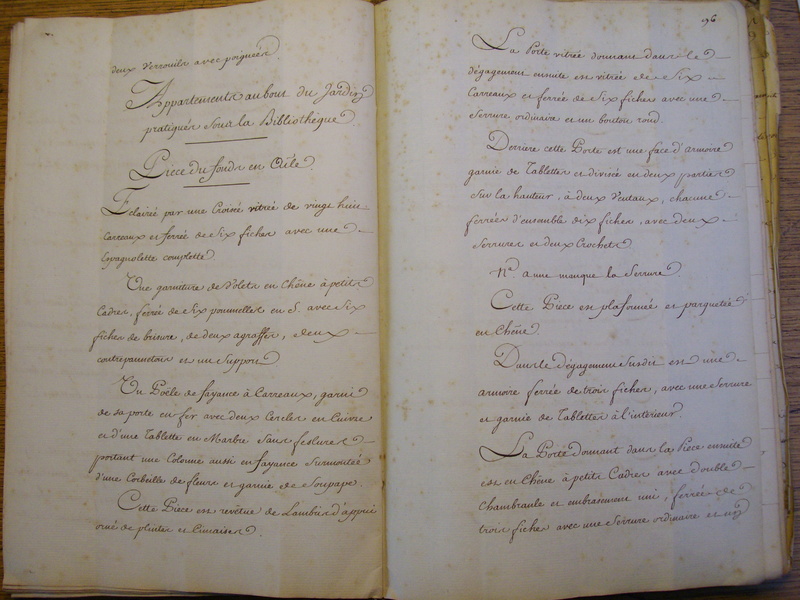 deux Verrouils avec poignées
Appartements au bout du Jardin
pratiqués Sous la Bibliothèque
Piece du fonds en Aîle.
Eclairée par une Croisée vitrée de vingt huit
Carreaux et ferrée de Six fiches avec une
Espagnolette complette
Une garniture de Volets en Chêne à petits
Cadres, ferrée de Six poumelles en S. avec Six
fiches de brisure, de deux agraffes, deux
contrepannetons et un Support
Un Poële de fayance à Carreaux, garni
de sa porte en fer avec deux Cercles en Cuivre
et d'une Tablette en Marbre Sans feslures
portant une Colonne aussi en fayance Surmontée
d'une Corbeille de fleurs et garnie de Soupape.
Cette Piece est revétue de Lambris d'appui
orné de plintes et Cimaises.
96
La Porte vitrée donnant dans le
dégagement ensuite est vitrée de Six
Carreaux et ferrée de Six fiches avec une
Serrure ordinaire et un bouton rond.
Derriere cette Porte est une face d'armoire
garnie de Tablettes et divisée en deux parties
Sur la hauteur, à deux Ventaux, chacune
ferrées d'ensemble dix fiches, avec deux
Serrures et deux Crochets
Nª a une manque la Serrure
Cette Piece est plafonnée et parquetée
en Chêne.
Dans le dégagement Susdit est une
armoire ferrée de trois fiches, avec une Serrure
et garnie de Tablettes à l'intérieur.
La Porte donnant dans la Piece ensuite
est en Chêne à petits Cadres avec double
Chambranle et embrasement uni, ferrée de
trois fiches avec une Serrure ordinaire et un